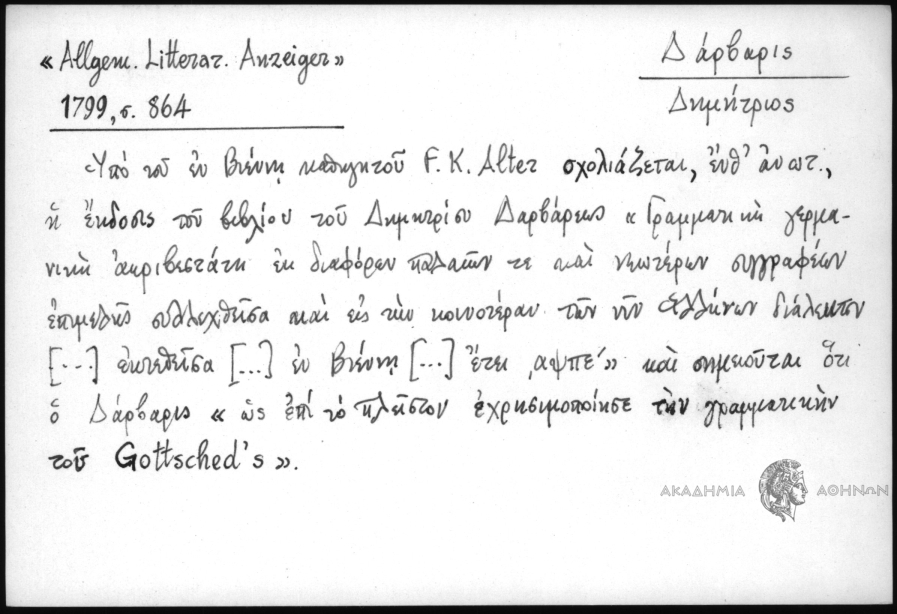 «Allgem. Litterar. Anzeiger»
1799, σ. 864
Δάρβαρις
Δημήτριος
Ὑπὸ τοῦ ἐν Βιέννῃ καθηγητοῦ F. K. Alter σχολιάζεται, ἔνθ' ἀνωτ.,
ἡ ἔκδοσις τοῦ βιβλίου τοῦ Δημητρίου Δαρβάρεως «Γραμματικὴ γερμα-
νικὴ ἀκριβεστάτη ἐκ διαφόρων παλαιῶν τε καὶ νεωτέρων συγγραφέων
ἐπιμελῶς συλλεχθεῖσα καὶ εἰς τὴν κοινοτέραν τῶν νῦν Ἑλλήνων διάλεκτον
[...] ἐκτεθεῖσα [...] ἐν Βιέννῃ [...] ἔτει ͵αψπε´» καὶ σημειοῦται ὅτι
ὁ Δάρβαρις «ὡς ἐπὶ τὸ πλεῖστον ἐχρησιμοποίησε τὴν γραμματικὴν
τοῦ Gottsched's».
ΑΚΑΔΗΜΙΑ ΑΘΗΝΩΝ